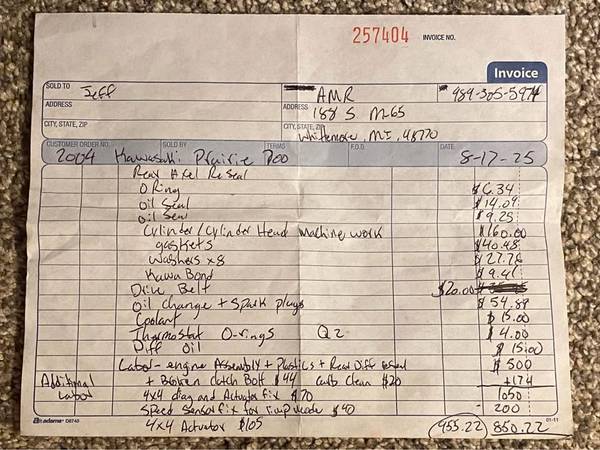 257404 INVOICE NO.
Invoice
SOLD TO Jeff AMR 989-305-5974
ADDRESS ADDRESS 188 S M-65
CITY, STATE, ZIP CITY, STATE, ZIP Whittemore, MI, 48770
CUSTOMER ORDER NO. SOLD BY TERMS F.O.B. DATE
2004 Kawasaki Prairie 700 8-17-25
Rear Axel Reseal
O Ring $6.34
Oil Seal $14.09
Oil Seal $9.25
Cylinder/Cylinder Head Machine work $160.00
gaskets $40.48
Washers x8 $27.76
Kawa Bond $9.41
Drive Belt $20.00
Oil change + Spark plugs $54.89
Coolant $15.00
Thermostat O-rings Q2 $4.00
Diff Oil $15.00
Labor - engine Assembly + Plastics + Rear Diff Reseal $500
Additional Labor + Broken Clutch Bolt $44 Carb Clean $20 +174
4x4 diag and Actuator fix $70 1050
Speed Sensor fix for limp mode $40 - 200
4x4 Actuator $105 955.22 850.22
adams D8740 01-11